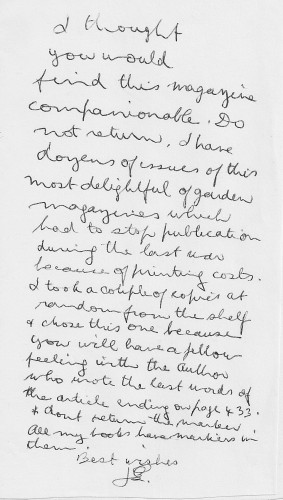 I thought
you would
find this magazine
companionable. Do
not return, I have
dozens of issues of this
most delightful of garden
magazines which
had to stop publication
during the last war
because of printing costs.
I took a couple of copies at
random from the shelf
& chose this one because
you will have a fellow
feeling with the author
who wrote the last words of
the article ending on page 433.
& don't return the marker
all my books have markers in
them.
Best wishes